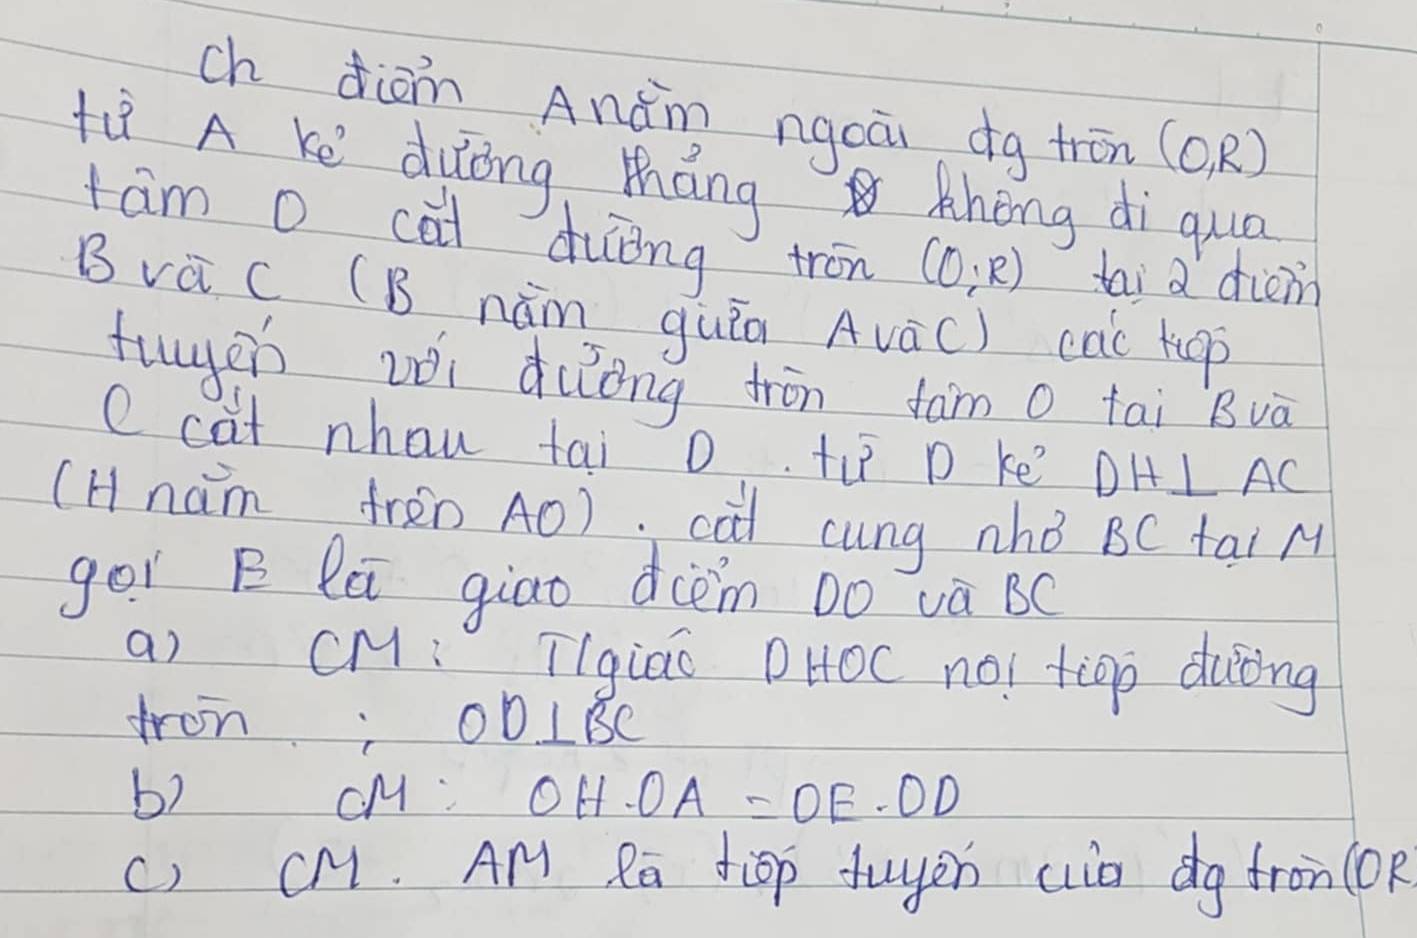 Ch điểm A nằm ngoài đg tròn (O,R)
từ A kẻ đường thẳng không đi qua
tâm O cắt đường tròn (O;R) tại 2 điểm
B và C (B nằm giữa A và C) các tiếp
tuyến với đường tròn tâm O tại B và
C cắt nhau tại D. từ D kẻ DH⊥ AC
(H nằm trên AO). cắt cung nhỏ BC tại M
gọi E là giao điểm DO và BC
a) CM: T/giác DHOC nội tiếp đường
tròn ; OD⊥BC
b) CM: OH.OA = OE.OD
c) CM. AM là tiếp tuyến của đg tròn (OR